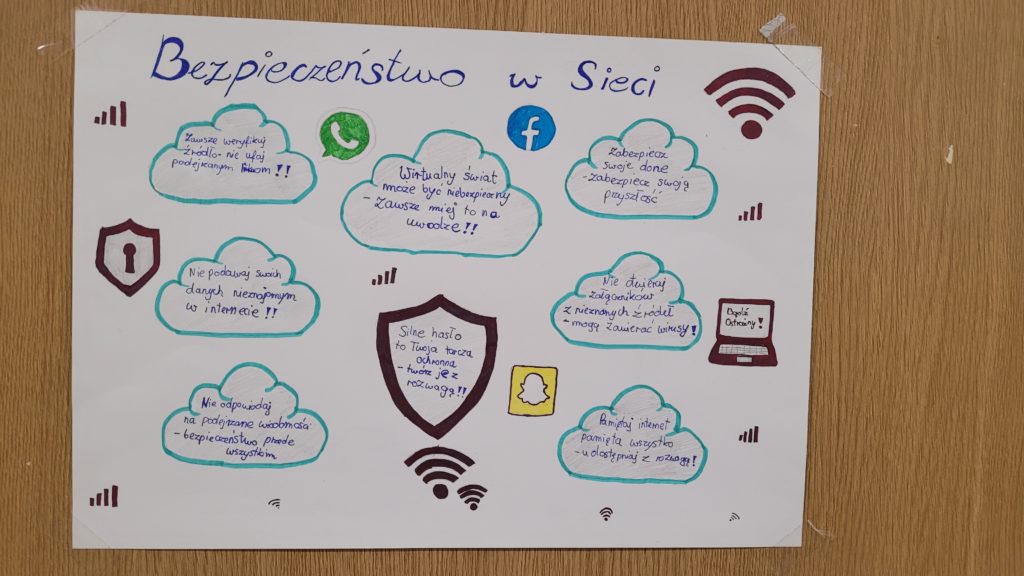 Bezpieczeństwo w Sieci
Zawsze weryfikuj
źródło - nie ufaj
podejrzanym !!
Wirtualny świat
może być niebezpieczny
- zawsze miej to na
uwadze!!
Zabezpiecz
swoje dane
- zabezpiecz swoją
przyszłość
Nie podawaj swoich
danych nieznajomym
w internecie !!
Silne hasło
to Twoja tarcza
ochronna
- twórz je z
rozwagą!!
Nie otwieraj
załączników
z nieznanych źródeł
- mogą zawierać wirusy!
Bądź
Ostrożny!
Nie odpowiadaj
na podejrzane wiadomości
- bezpieczeństwo przede
wszystkim
Pamiętaj internet
pamięta wszystko
- udostępniaj z rozwagą!